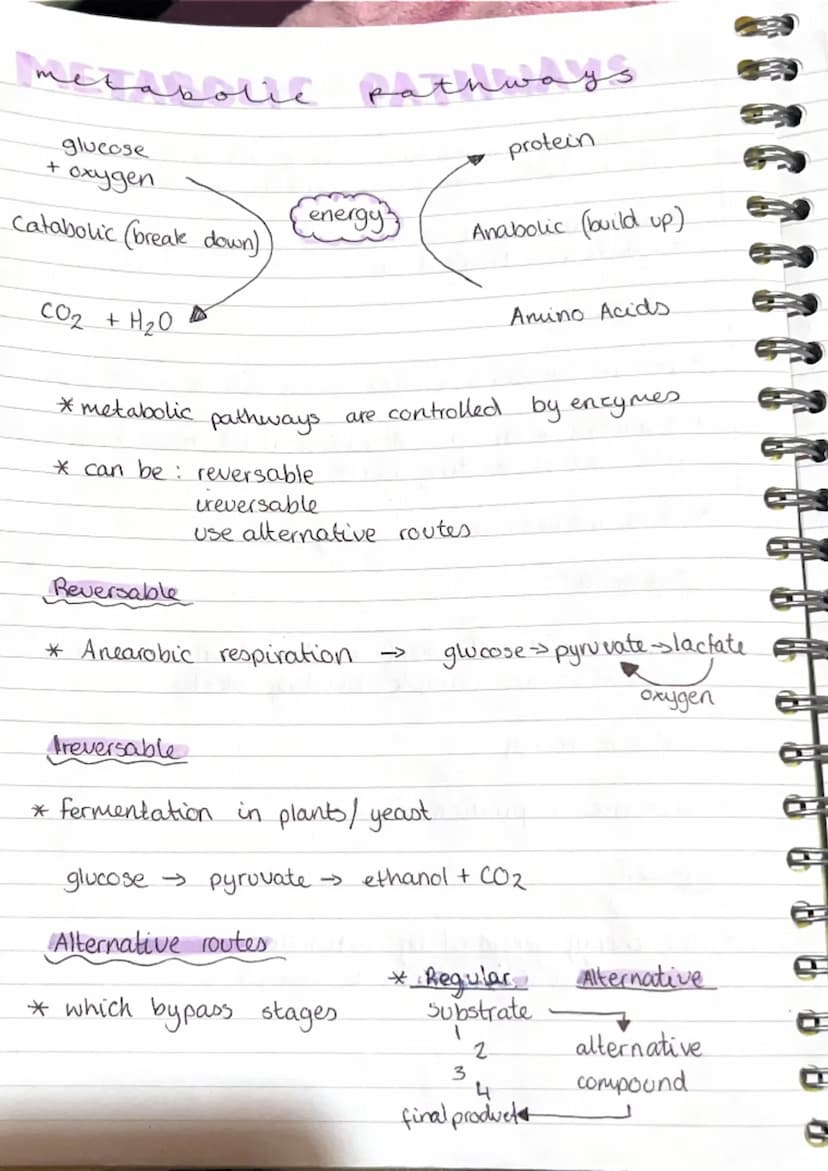 metabolic pathways
glucose
+ oxygen
Catabolic (break down)
CO2 + H2O
energy
protein
Anabolic (build up)
Amino Acids
* metabolic pathways are controlled by enzymes
* can be : reversable
ireversable
use alternative routes
Reversable
* Anearobic respiration → glucose → pyruvate → lactate
oxygen
Ireversable
* fermentation in plants/yeast
glucose → pyruvate → ethanol + CO2
Alternative routes
* which bypass stages
* Regular
substrate
1
2
3
4
final product
Alternative
alternative
compound